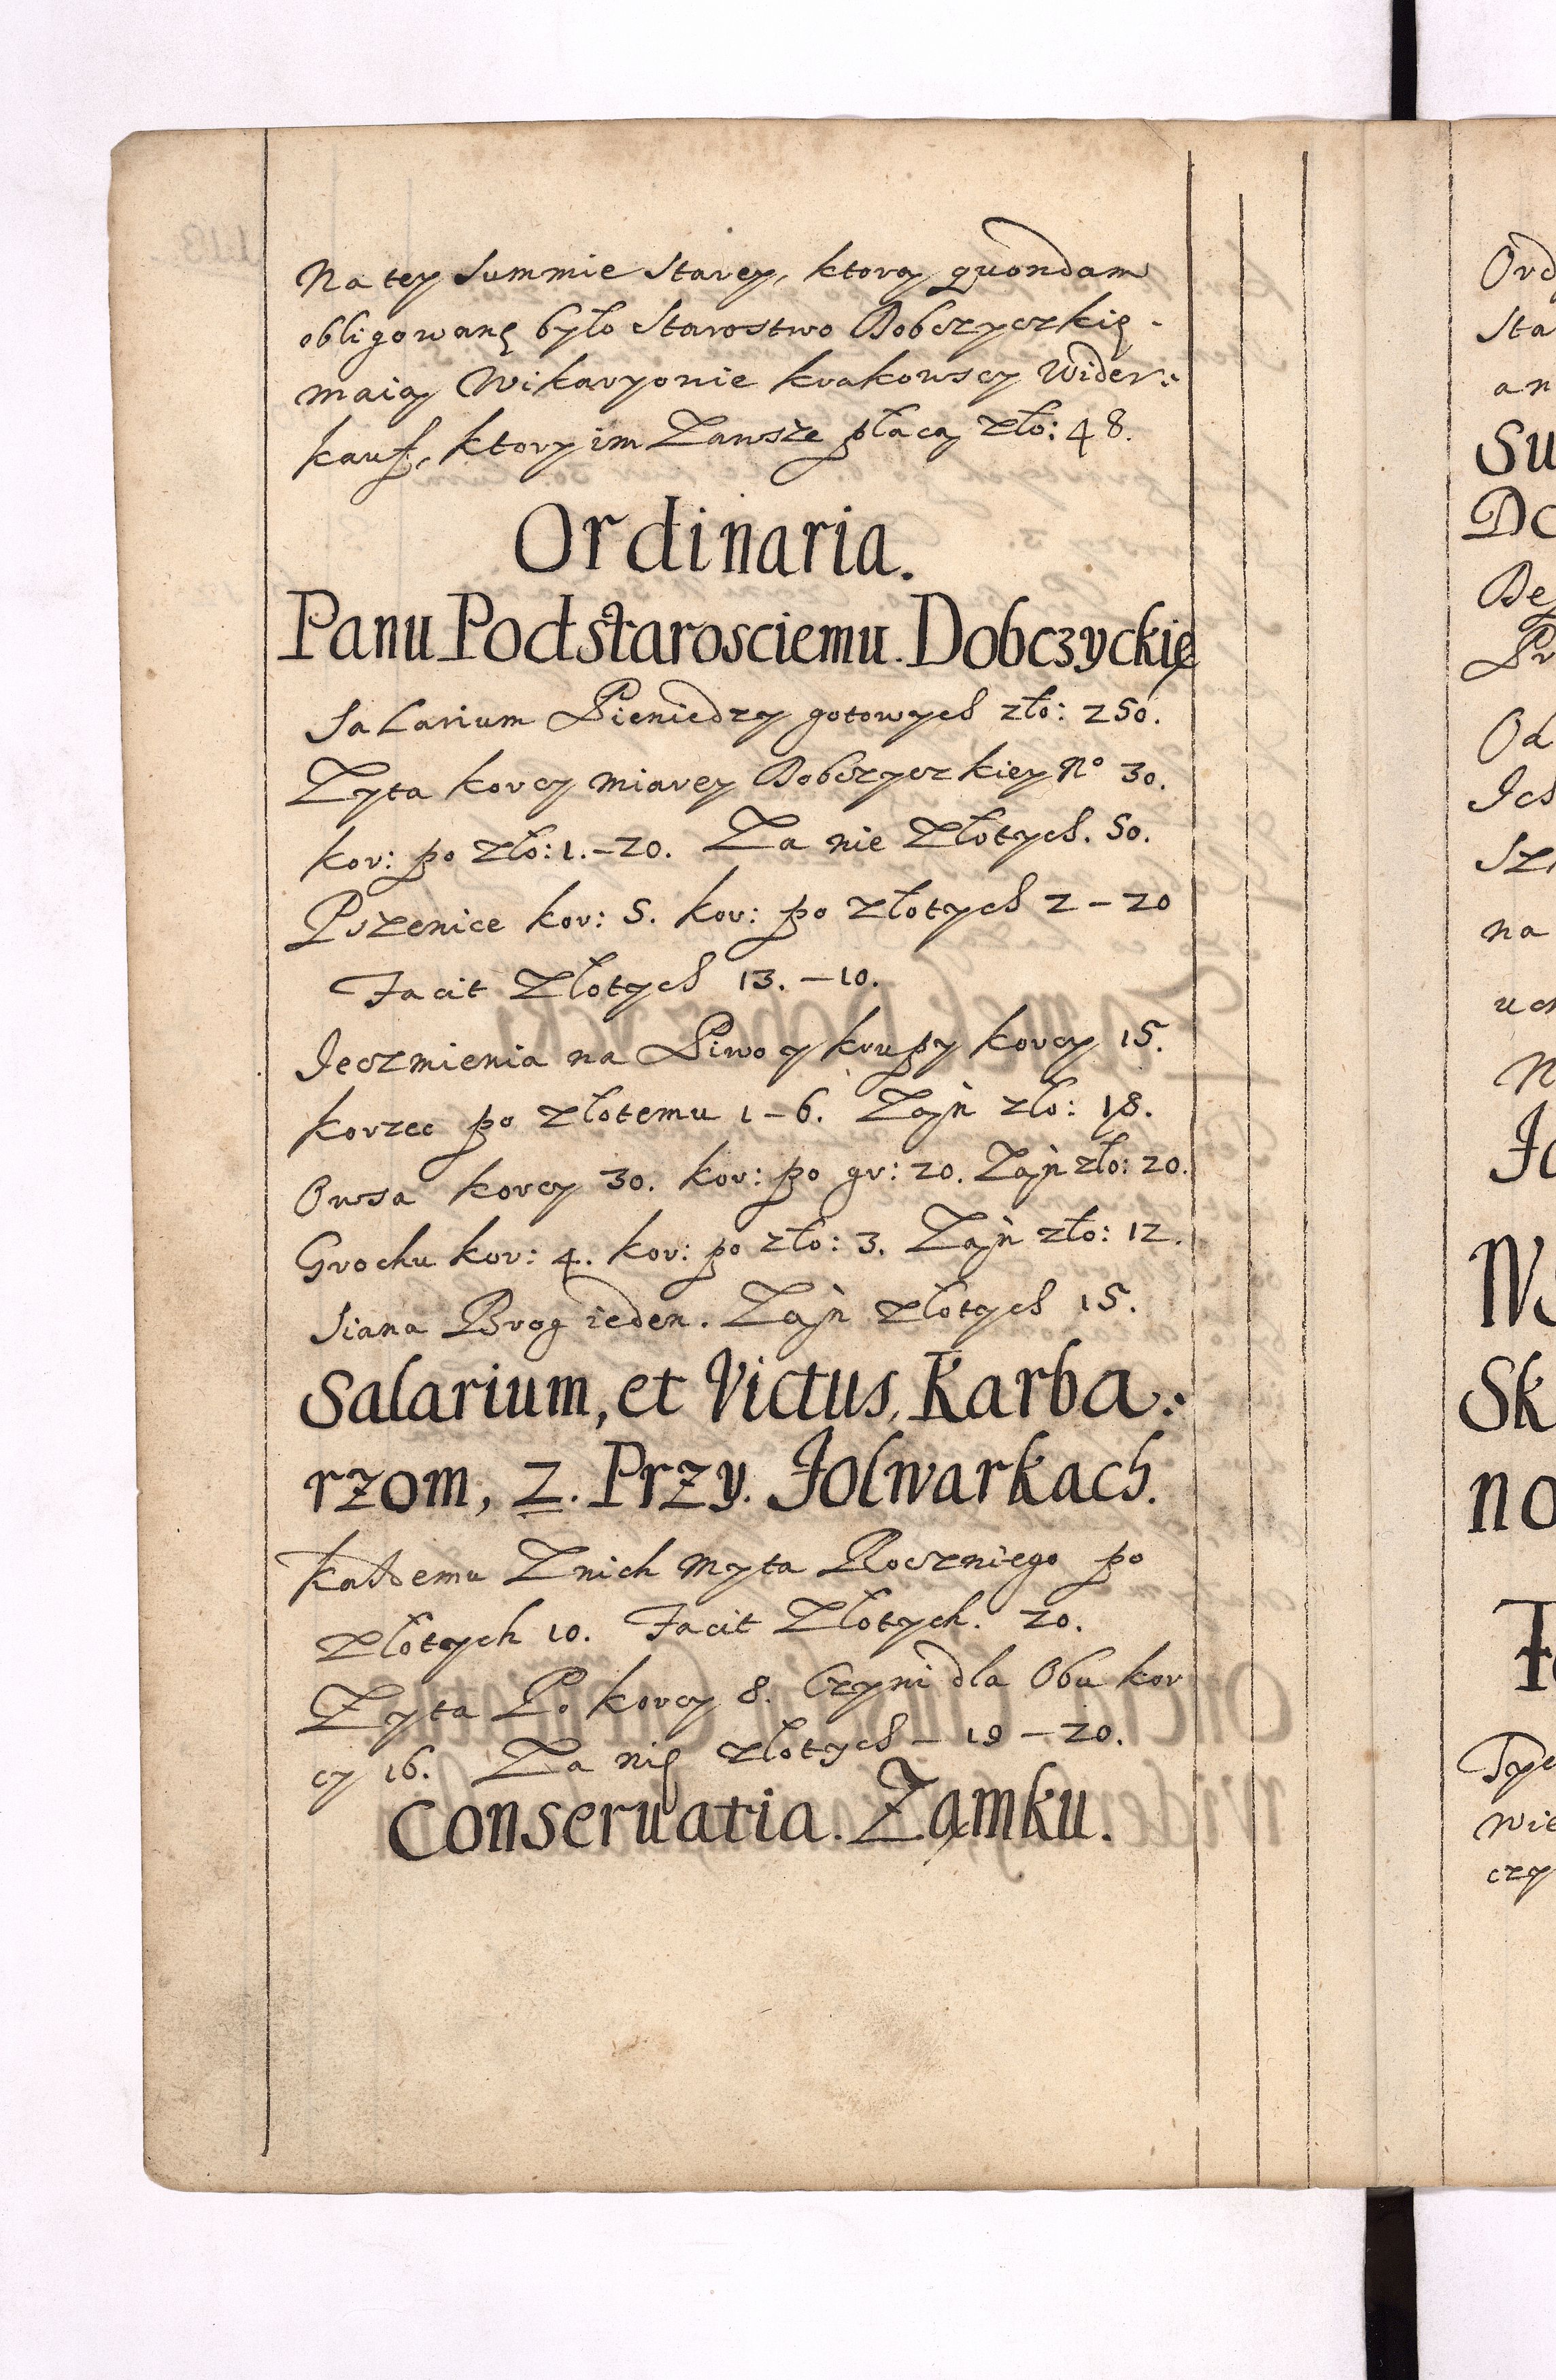 Na tey Summie Starey, ktorą quondam
obligowane było Starostwo Dobczyczkię.
maią Wikaryonie krakowscy Wider:
kauf, ktory im Zawsze płacą zło: 48.
Ordinaria.
Panu Podstarosciemu. Dobczyckię
Salarium Pieniedzy gotowych zło: 250.
Zyta korcy miarey Dobczyczkiey No 30.
kor: po zło: 1.–20. Za nie Złotych. 50.
Pszenice kor: 5. kor: po złotych 2–20
Facit Złotych 13.–10.
Jeczmienia na Piwo y krupy korcy 15.
korzec po złotemu 1–6. Zań zło: 18.
Owsa korcy 30. kor: po gr: 20. Zań zło: 20.
Grochu kor: 4. kor: po zło: 3. Zań zło: 12.
Siana Brog ieden. Zań złotych 15.
Salarium, et Victus, Karba:
rzom, 2. Przy. Folwarkach.
Każdemu Znich Myta Roczniego po
złotych 10. Facit Złotych. 20.
Zyta Po korcy 8. Czyni dla Obu kor
cy 16. Za nię złotych – 19 – 20.
Conseruatia. Zamku.